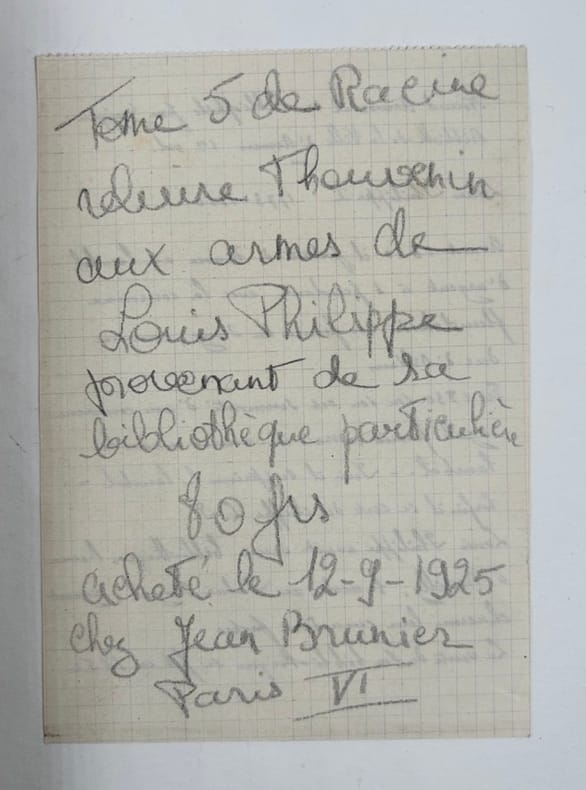 Tome 5 de Racine
reliure Thouvenin
aux armes de
Louis Philippe
provenant de sa
bibliothèque particulière
80 frs
acheté le 12-9-1925
chez Jean Brunier
Paris VI